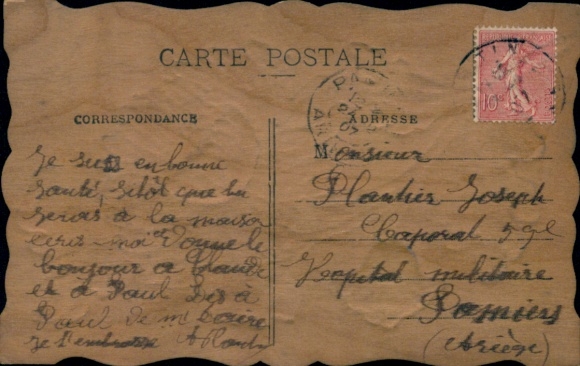 CARTE POSTALE
CORRESPONDANCE
ADRESSE
Je suis en bonne
santé, sitôt que tu
seras à la maison
ecris moi Donne le
bonjour a
et à Paul Dis à
Paul de m'
Je t'embrasse
Monsieur
Joseph
Caporal
Hopital militaire
Pamiers
(Ariège)
10